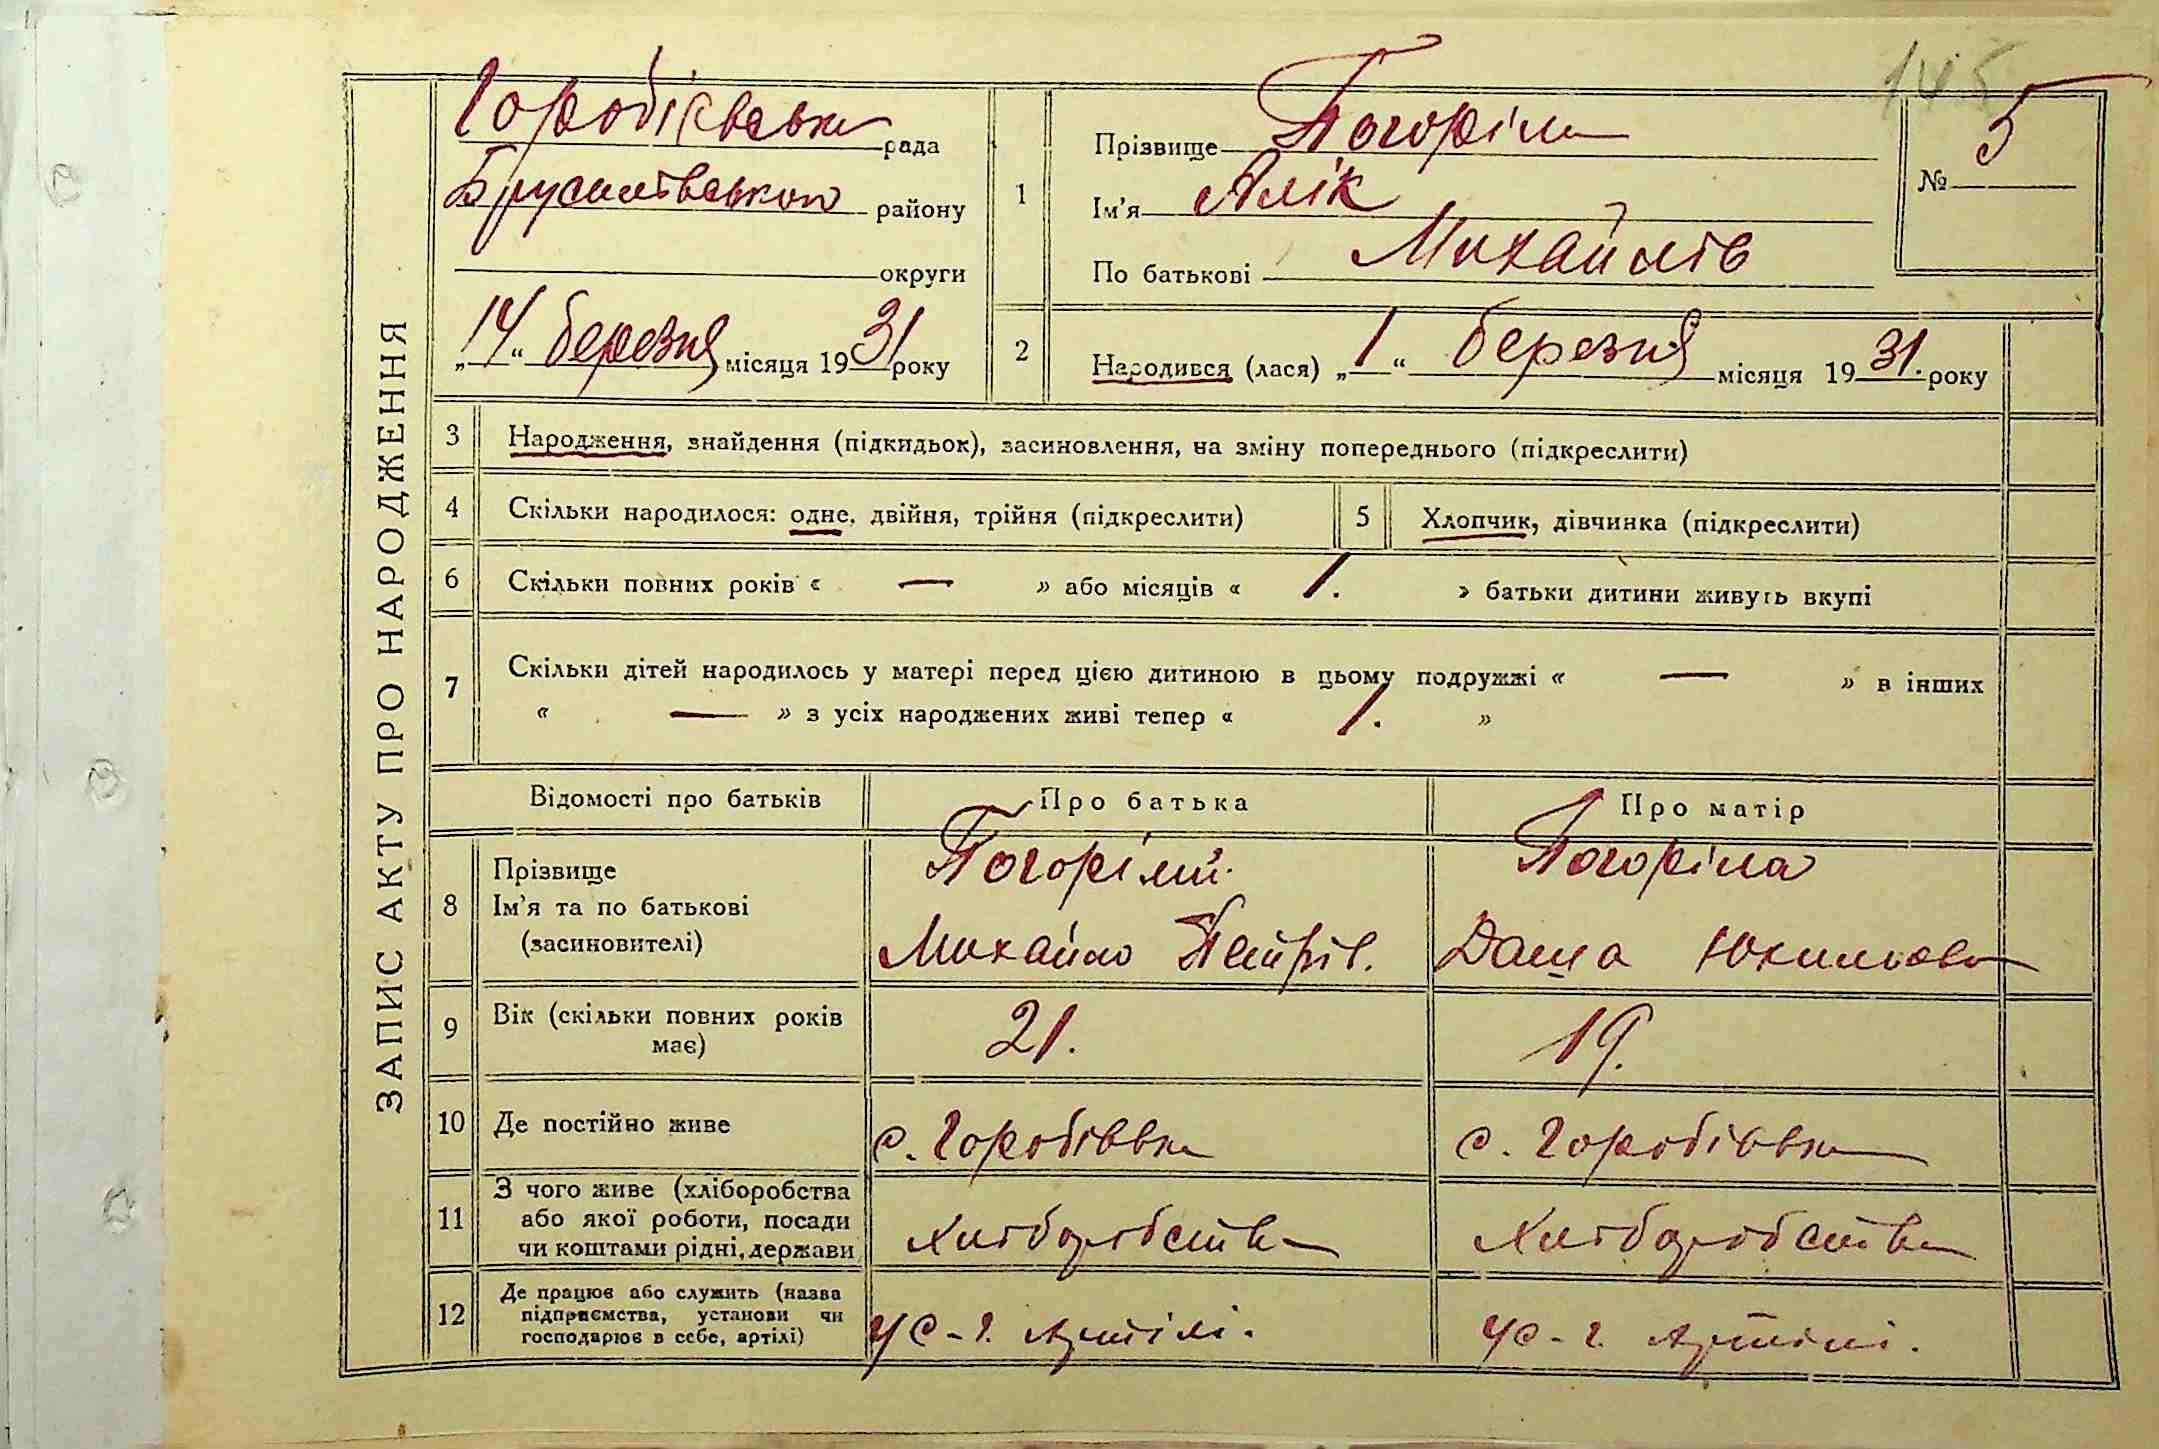 145
ЗАПИС АКТУ ПРО НАРОДЖЕННЯ
Горобіївська рада
Брусилівського району
округи
„14“ березня місяця 1931 року
1
Прізвище Погоріли
Ім'я Алік
По батькові Михайлів
№ 5
2
Народився (лася) „1“ березня місяця 1931. року
3 Народження, знайдення (підкидьок), засиновлення, на зміну попереднього (підкреслити)
4 Скільки народилося: одне, двійня, трійня (підкреслити)
5 Хлопчик, дівчинка (підкреслити)
6 Скільки повних років « — » або місяців « 1. » батьки дитини живуть вкупі
7 Скільки дітей народилось у матері перед цією дитиною в цьому подружжі « — » в інших
« — » з усіх народжених живі тепер « 1. »
Відомості про батьків Про батька Про матір
8 Прізвище
Ім'я та по батькові
(засиновителі)
Погорілий
Михайло Петрів.
Погоріла
Даша Юхимова
9 Вік (скільки повних років
має)
21.
19.
10 Де постійно живе
с. Горобіївка
с. Горобіївка
11 З чого живе (хліборобства
або якої роботи, посади
чи коштами рідні, держави
Хліборобства
Хліборобства
12 Де працює або служить (назва
підприємства, установи чи
господарює в себе, артілі)
у с-г. артілі.
у с-г. артілі.